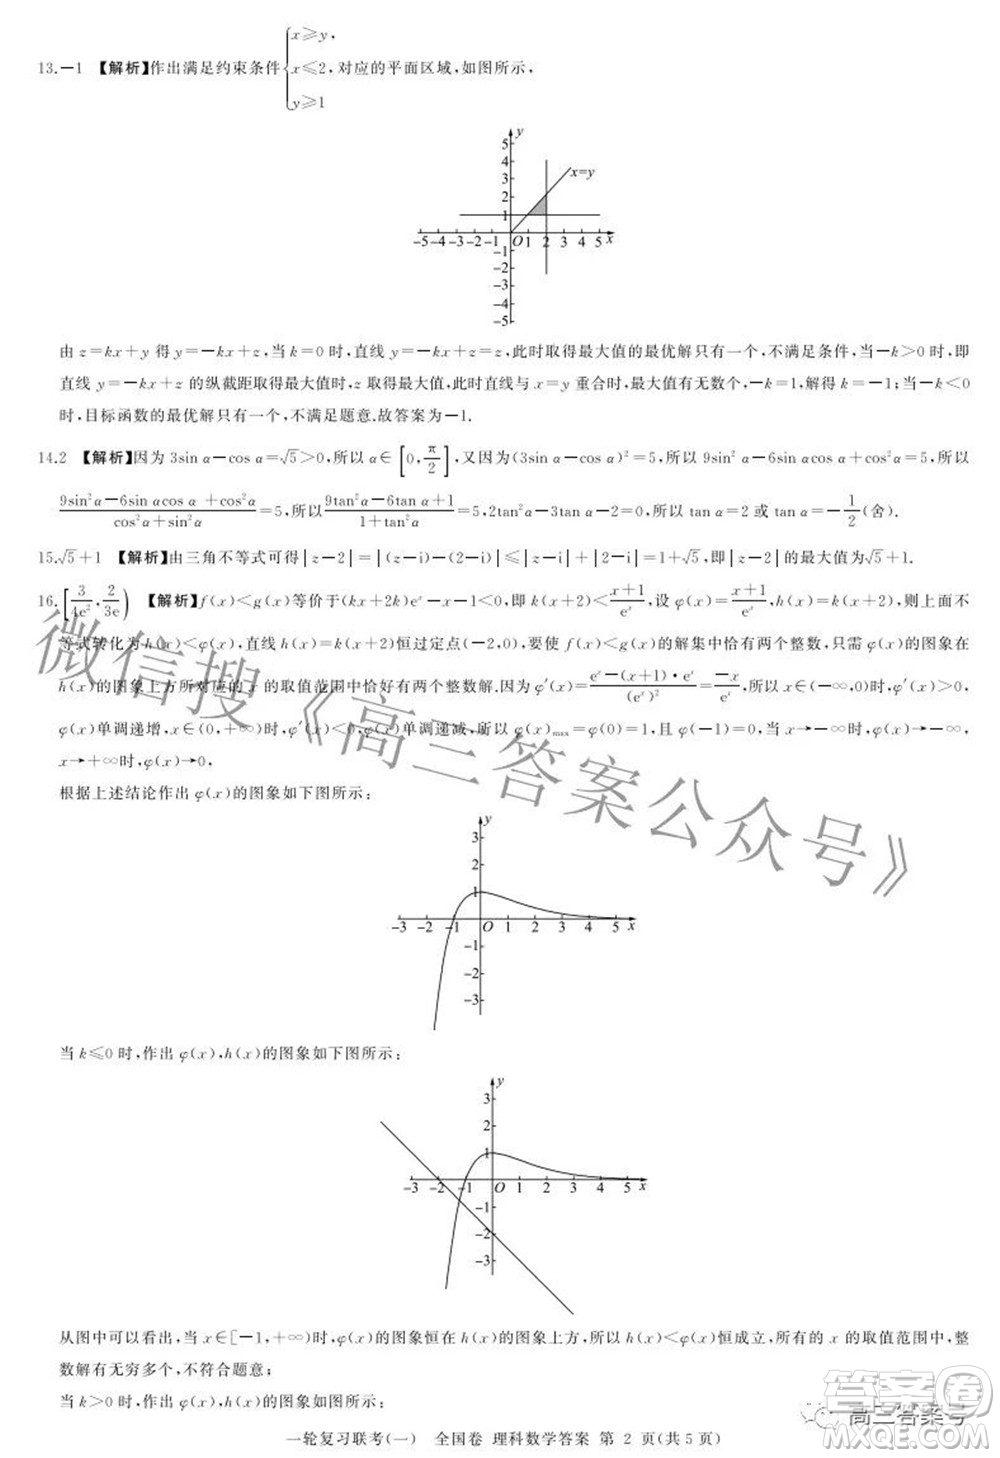 13.－1 【解析】作出满足约束条件{x≥y, x≤2, y≥1 对应的平面区域,如图所示,
y
5
4
3
2
1
x=y
-5 -4 -3 -2 -1 O 1 2 3 4 5 x
-1
-2
-3
-4
-5
由 z＝kx＋y 得 y＝－kx＋z,当 k＝0 时,直线 y＝－kx＋z＝z,此时取得最大值的最优解只有一个,不满足条件,当－k＞0 时,即
直线 y＝－kx＋z 的纵截距取得最大值时,z 取得最大值,此时直线与 x＝y 重合时,最大值有无数个,－k＝1,解得 k＝－1;当－k＜0
时,目标函数的最优解只有一个,不满足题意.故答案为－1.
14.2 【解析】因为 3sin α－cos α＝√5＞0,所以 α∈[0,π/2],又因为(3sin α－cos α)²＝5,所以 9sin²α－6sin αcos α＋cos²α＝5,所以
(9sin²α－6sin αcos α＋cos²α)/(cos²α＋sin²α)＝5,所以(9tan²α－6tan α＋1)/(1＋tan²α)＝5,2tan²α－3tan α－2＝0,所以 tan α＝2 或 tan α＝－1/2(舍).
15.√5＋1 【解析】由三角不等式可得|z－2|＝|(z－i)－(2－i)|≤|z－i|＋|2－i|＝1＋√5,即|z－2|的最大值为√5＋1.
16.[3/4e²,2/3e) 【解析】f(x)＜g(x)等价于(kx＋2k)eˣ－x－1＜0,即 k(x＋2)＜(x＋1)/eˣ,设 φ(x)＝(x＋1)/eˣ,h(x)＝k(x＋2),则上面不
等式转化为 h(x)＜φ(x),直线 h(x)＝k(x＋2)恒过定点(－2,0),要使 f(x)＜g(x)的解集中恰有两个整数,只需 φ(x)的图象在
h(x)的图象上方所对应的 x 的取值范围中恰好有两个整数解.因为 φ′(x)＝(eˣ－(x＋1)·eˣ)/(eˣ)²＝－x/eˣ,所以 x∈(－∞,0)时,φ′(x)＞0,
φ(x)单调递增,x∈(0,＋∞)时,φ′(x)＜0,φ(x)单调递减,所以 φ(x)max＝φ(0)＝1,且 φ(－1)＝0,当 x→－∞时,φ(x)→－∞,
x→＋∞时,φ(x)→0,
根据上述结论作出 φ(x)的图象如下图所示:
y
3
2
1
-3 -2 -1 O 1 2 3 4 5 x
-1
-2
-3
当 k≤0 时,作出 φ(x),h(x)的图象如下图所示:
y
3
2
1
-3 -2 -1 O 1 2 3 4 5 x
-1
-2
-3
从图中可以看出,当 x∈[－1,＋∞)时,φ(x)的图象恒在 h(x)的图象上方,所以 h(x)＜φ(x)恒成立,所有的 x 的取值范围中,整
数解有无穷多个,不符合题意;
当 k＞0 时,作出 φ(x),h(x)的图象如下图所示:
一轮复习联考(一) 全国卷 理科数学答案 第 2 页(共 5 页)
微信搜《高三答案公众号》
高三答案号
答案圈
MXQE.COM